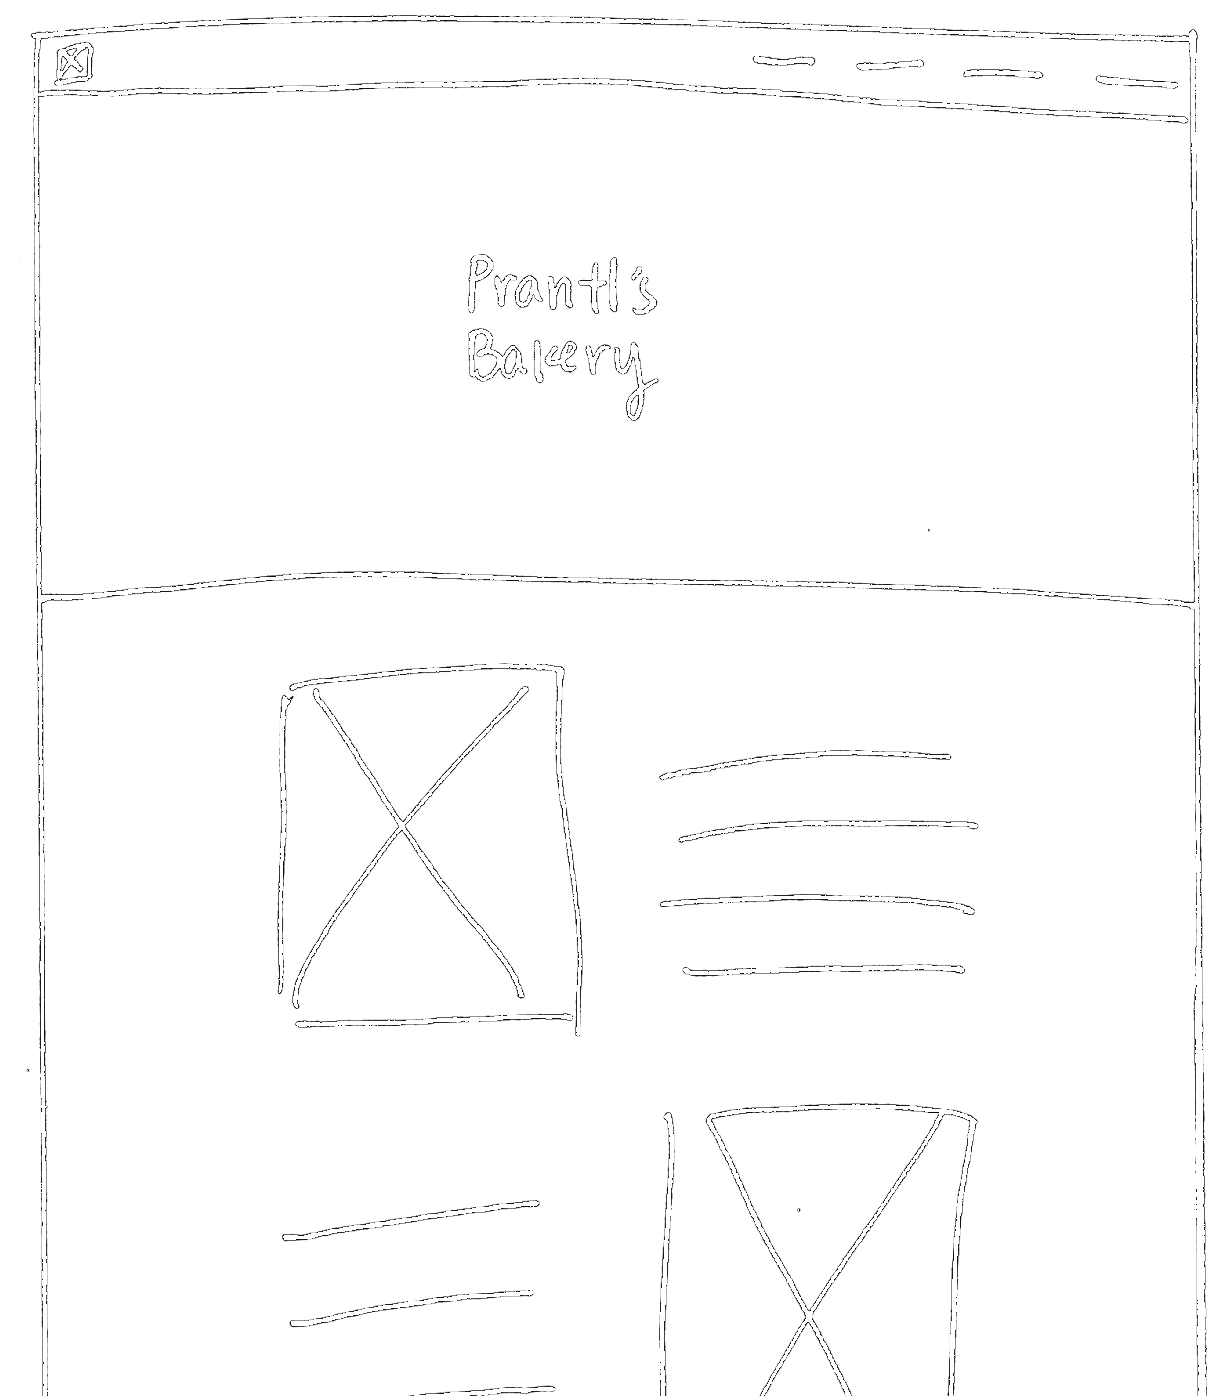 Prantl's
Bakery